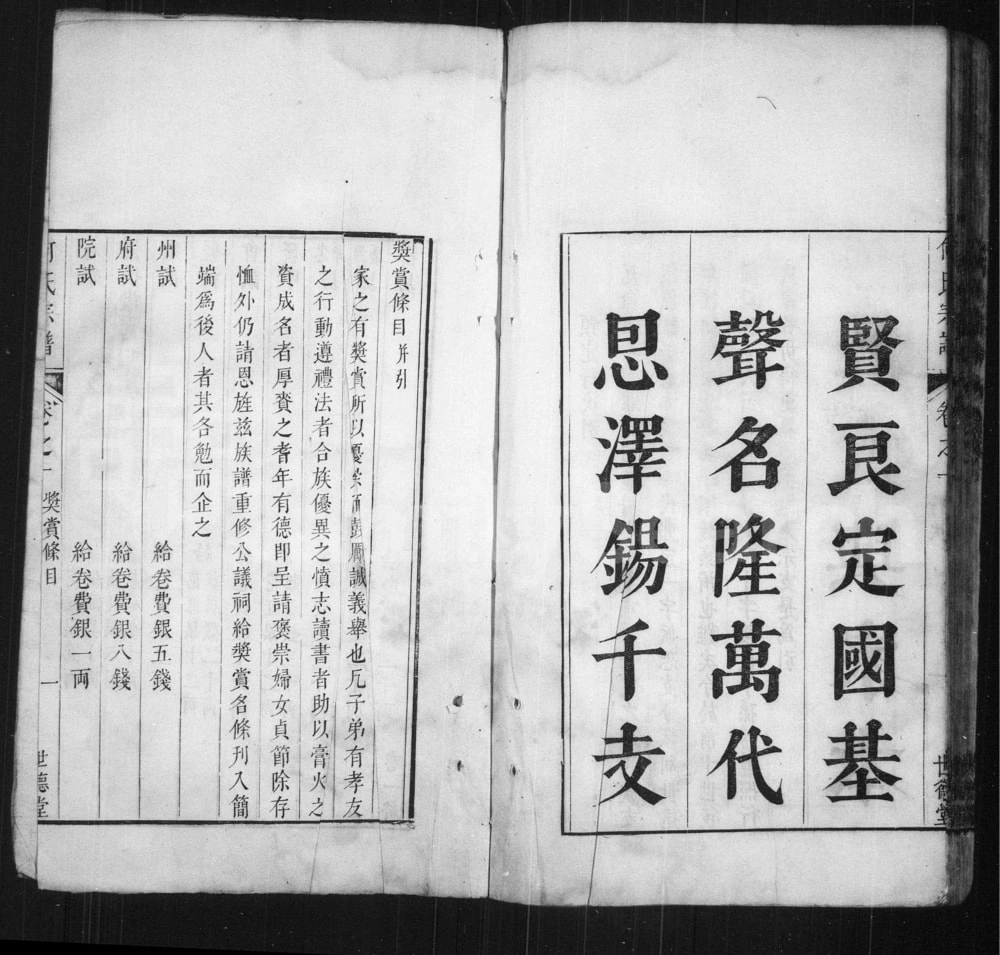 何氏宗譜 卷之一 世德堂
賢良定國基
聲名隆萬代
恩澤錫千支
獎賞條目并引
家之有獎賞所以優崇而彰厲誠義舉也凡子弟有孝友
之行動遵禮法者合族優異之憤志讀書者助以膏火之
資成名者厚賚之耆年有德即呈請褒崇婦女貞節除存
恤外仍請恩旌兹族譜重修公議祠給獎賞名條刊入簡
端爲後人者其各勉而企之
州試 給卷費銀五錢
府試 給卷費銀八錢
院試 給卷費銀一両
何氏宗譜 卷之一 獎賞條目 一 世德堂